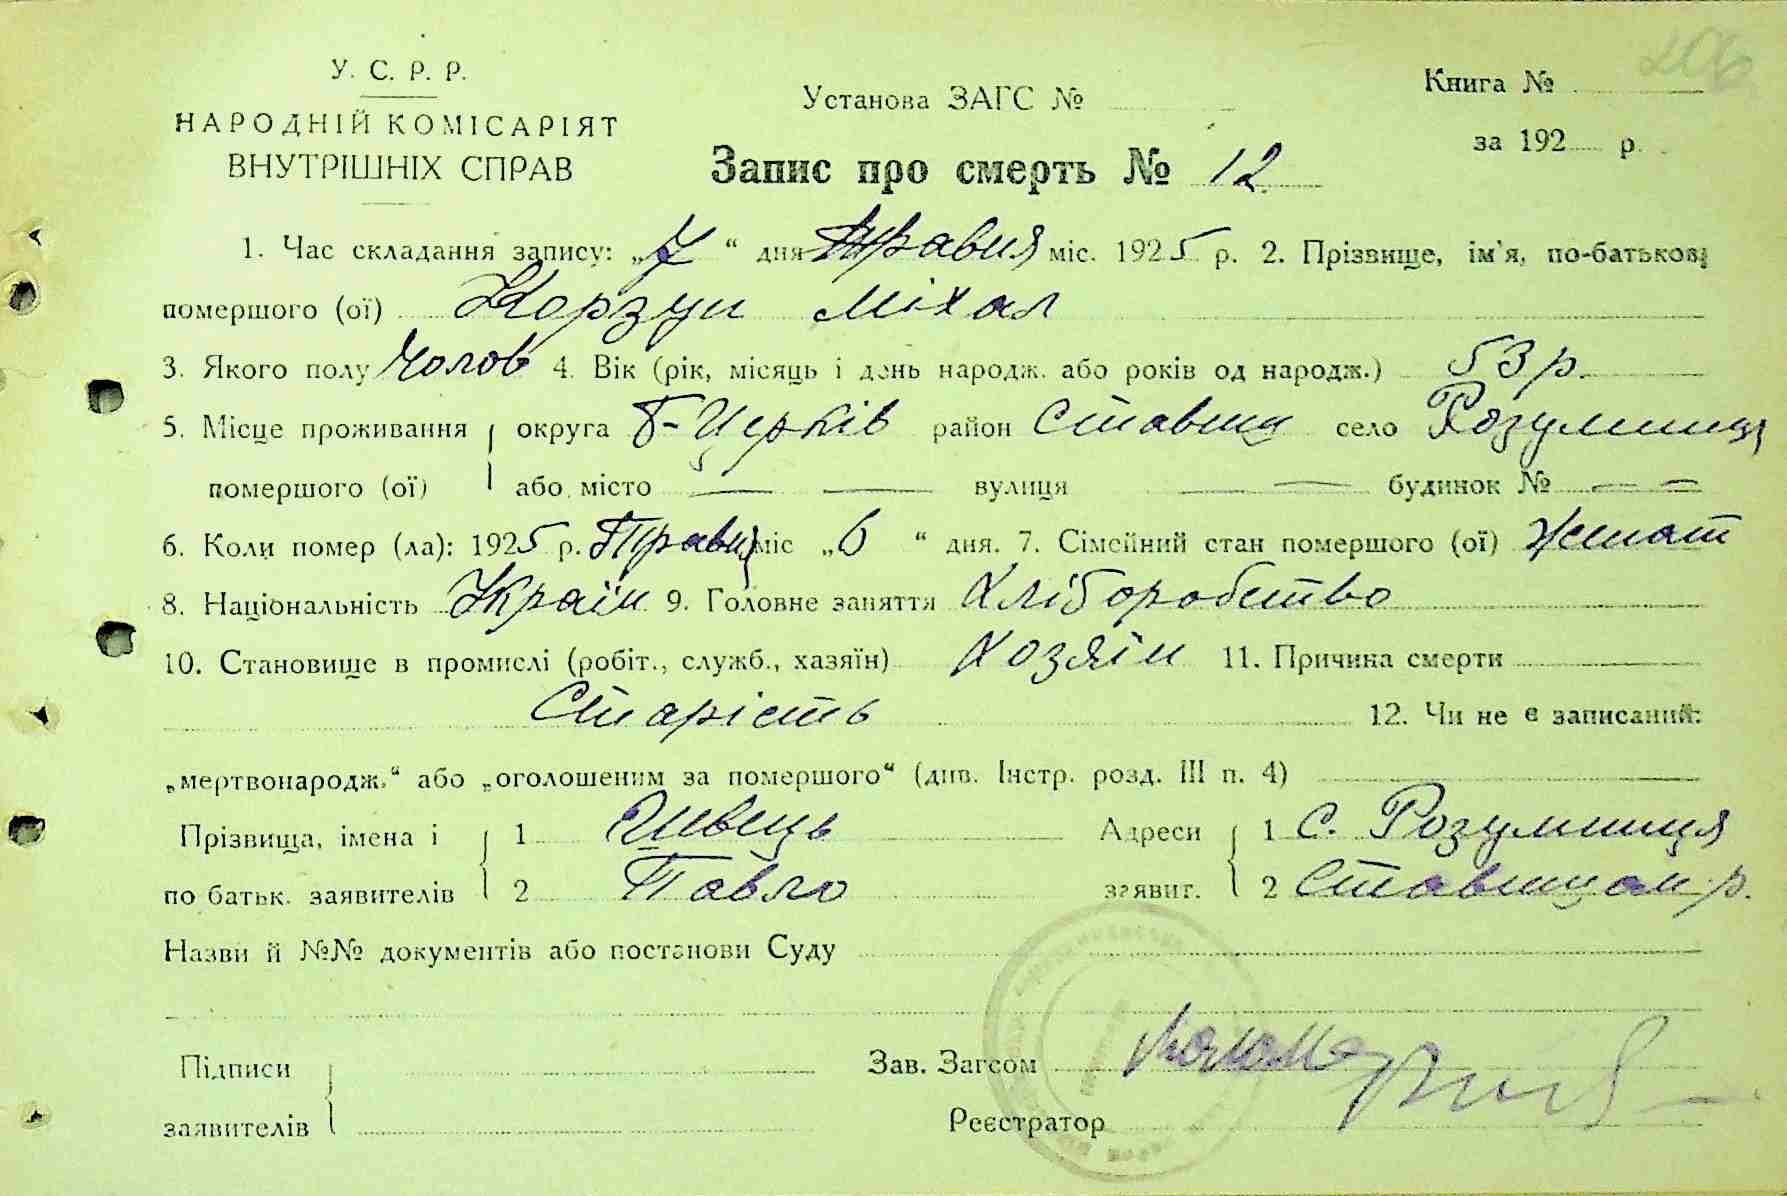 206
У. С. Р. Р.
НАРОДНІЙ КОМІСАРІЯТ
ВНУТРІШНІХ СПРАВ
Установа ЗАГС №
Книга №
за 192 р.
Запис про смерть № 12
1. Час складання запису: „7“ дня Травня міс. 1925 р. 2. Прізвище, ім'я, по-батькові
помершого (ої) Корзун Міхал
3. Якого полу Чолов 4. Вік (рік, місяць і день народж. або років од народж.) 53 р.
5. Місце проживання округа Б-Церків район Ставищ село Розумниця
помершого (ої) або місто — — вулиця — — будинок № — —
6. Коли помер (ла): 1925 р. Травня міс „6“ дня. 7. Сімейний стан помершого (ої) Жонат
8. Національність Україн 9. Головне заняття Хліборобство
10. Становище в промислі (робіт., служб., хазяїн) Хозяїн 11. Причина смерти
Старість 12. Чи не є записаний:
„мертвонародж.“ або „оголошеним за помершого“ (див. Інстр. розд. III п. 4)
Прізвища, імена і 1 Швець Адреси 1 с. Розумниця
по батьк. заявителів 2 Павло заявит. 2 Ставищан р.
Назви й №№ документів або постанови Суду
Підписи
заявителів
Зав. Загсом
Реєстратор